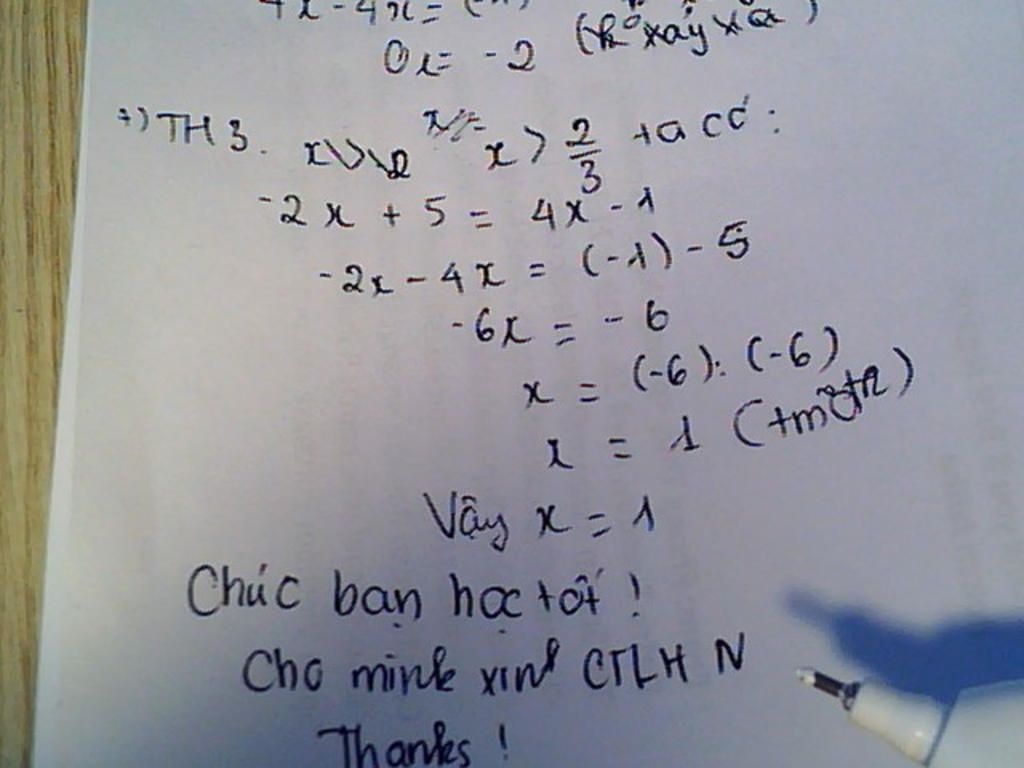 4x - 4x =
0x = -2 (k° xảy ra)
+) TH3. x > 2/3 ta có:
-2x + 5 = 4x - 1
-2x - 4x = (-1) - 5
-6x = -6
x = (-6) : (-6)
x = 1 (tmđk)
Vậy x = 1
Chúc bạn học tốt !
Cho mình xin CTLH N
Thanks !